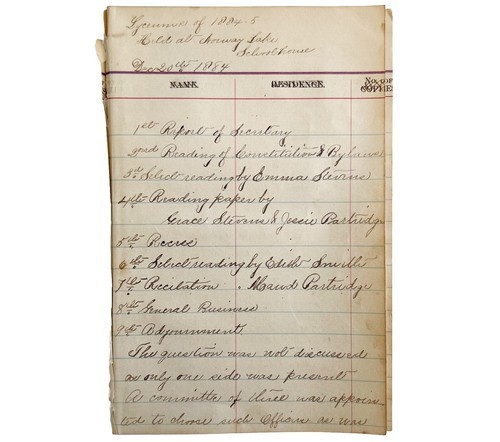 Lyceum of 1884-5
Held at Norway Lake
Schoolhouse
Dec 20th 1884
NAME. RESIDENCE. No. of COPIES
1st Report of Secretary
2nd Reading of Constitution & Bylaws
3rd Select reading by Emma Stevens
4th Reading paper by
Grace Stevens & Josie Partridge
5th Recess
6th Select reading by Edith Smith
7th Recitation " Maud Partridge
8th General Business
9th Adjournment.
The question was not discussed
as only one side was present
A committe of three was appoin-
ted to choose such Officers as was